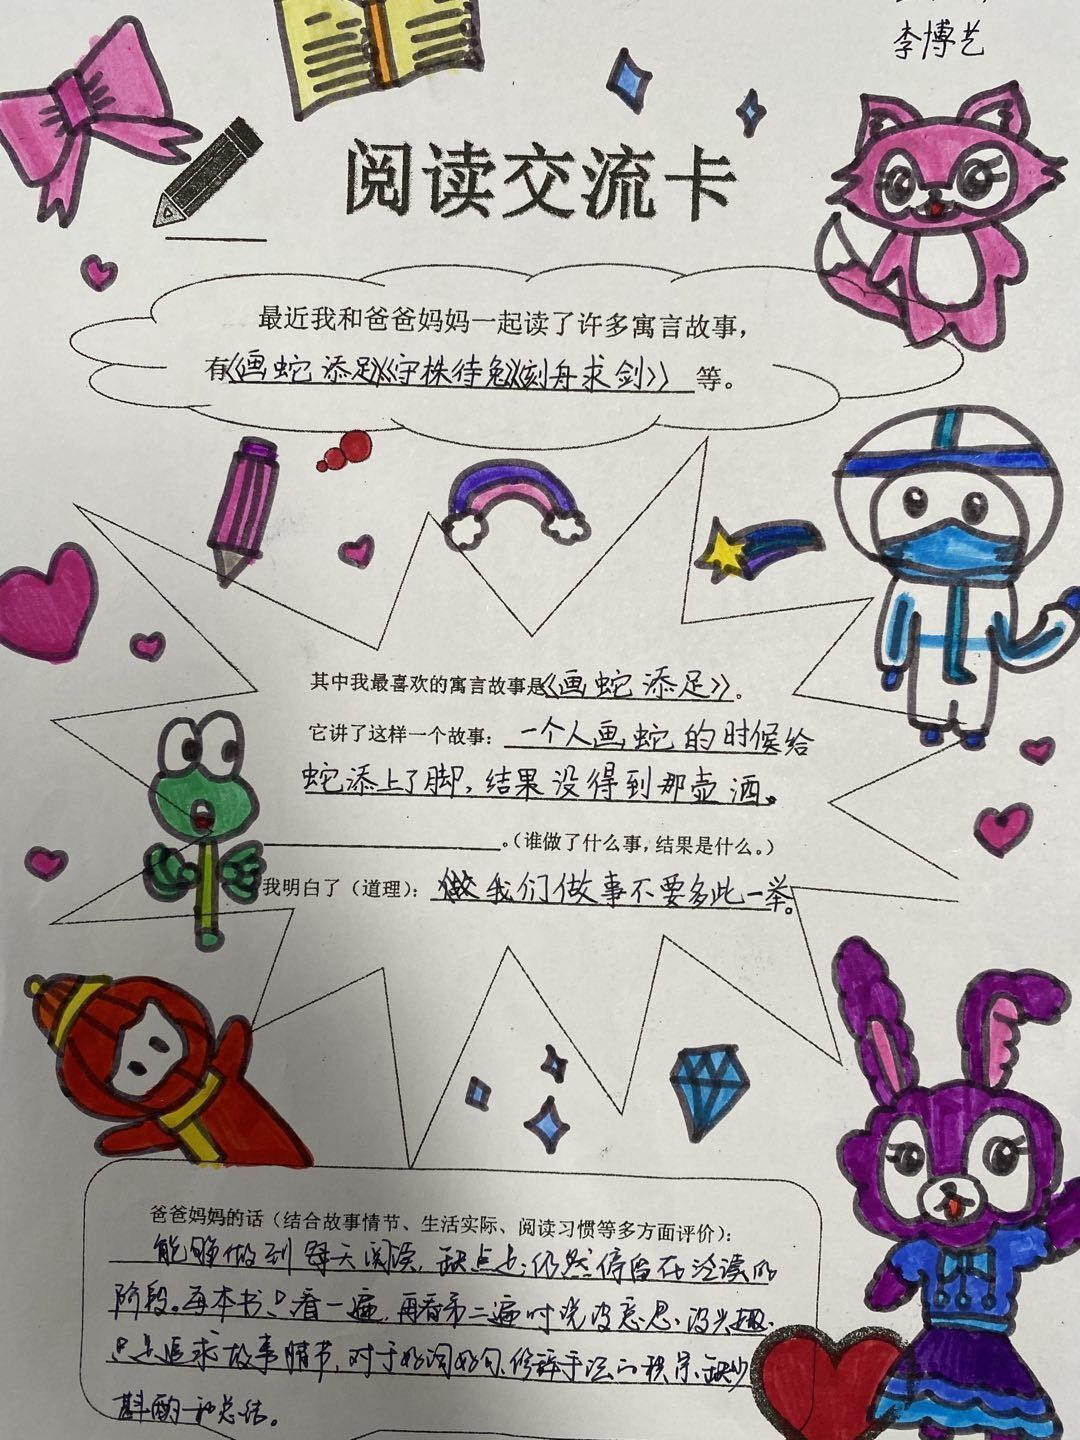 李博艺
阅读交流卡
最近我和爸爸妈妈一起读了许多寓言故事，
有《画蛇添足》《守株待兔》《刻舟求剑》等。
其中我最喜欢的寓言故事是《画蛇添足》。
它讲了这样一个故事：一个人画蛇的时候给
蛇添上了脚，结果没得到那壶酒。
。（谁做了什么事，结果是什么。）
我明白了（道理）：做我们做事不要多此一举。
爸爸妈妈的话（结合故事情节、生活实际、阅读习惯等多方面评价）：
能够做到每天阅读，缺点是：仍然停留在泛读的
阶段。每本书只看一遍，再看第二遍时说没意思、没兴趣、
只是追求故事情节，对于好词好句、修辞手法的积累、缺少
斟酌和总结。